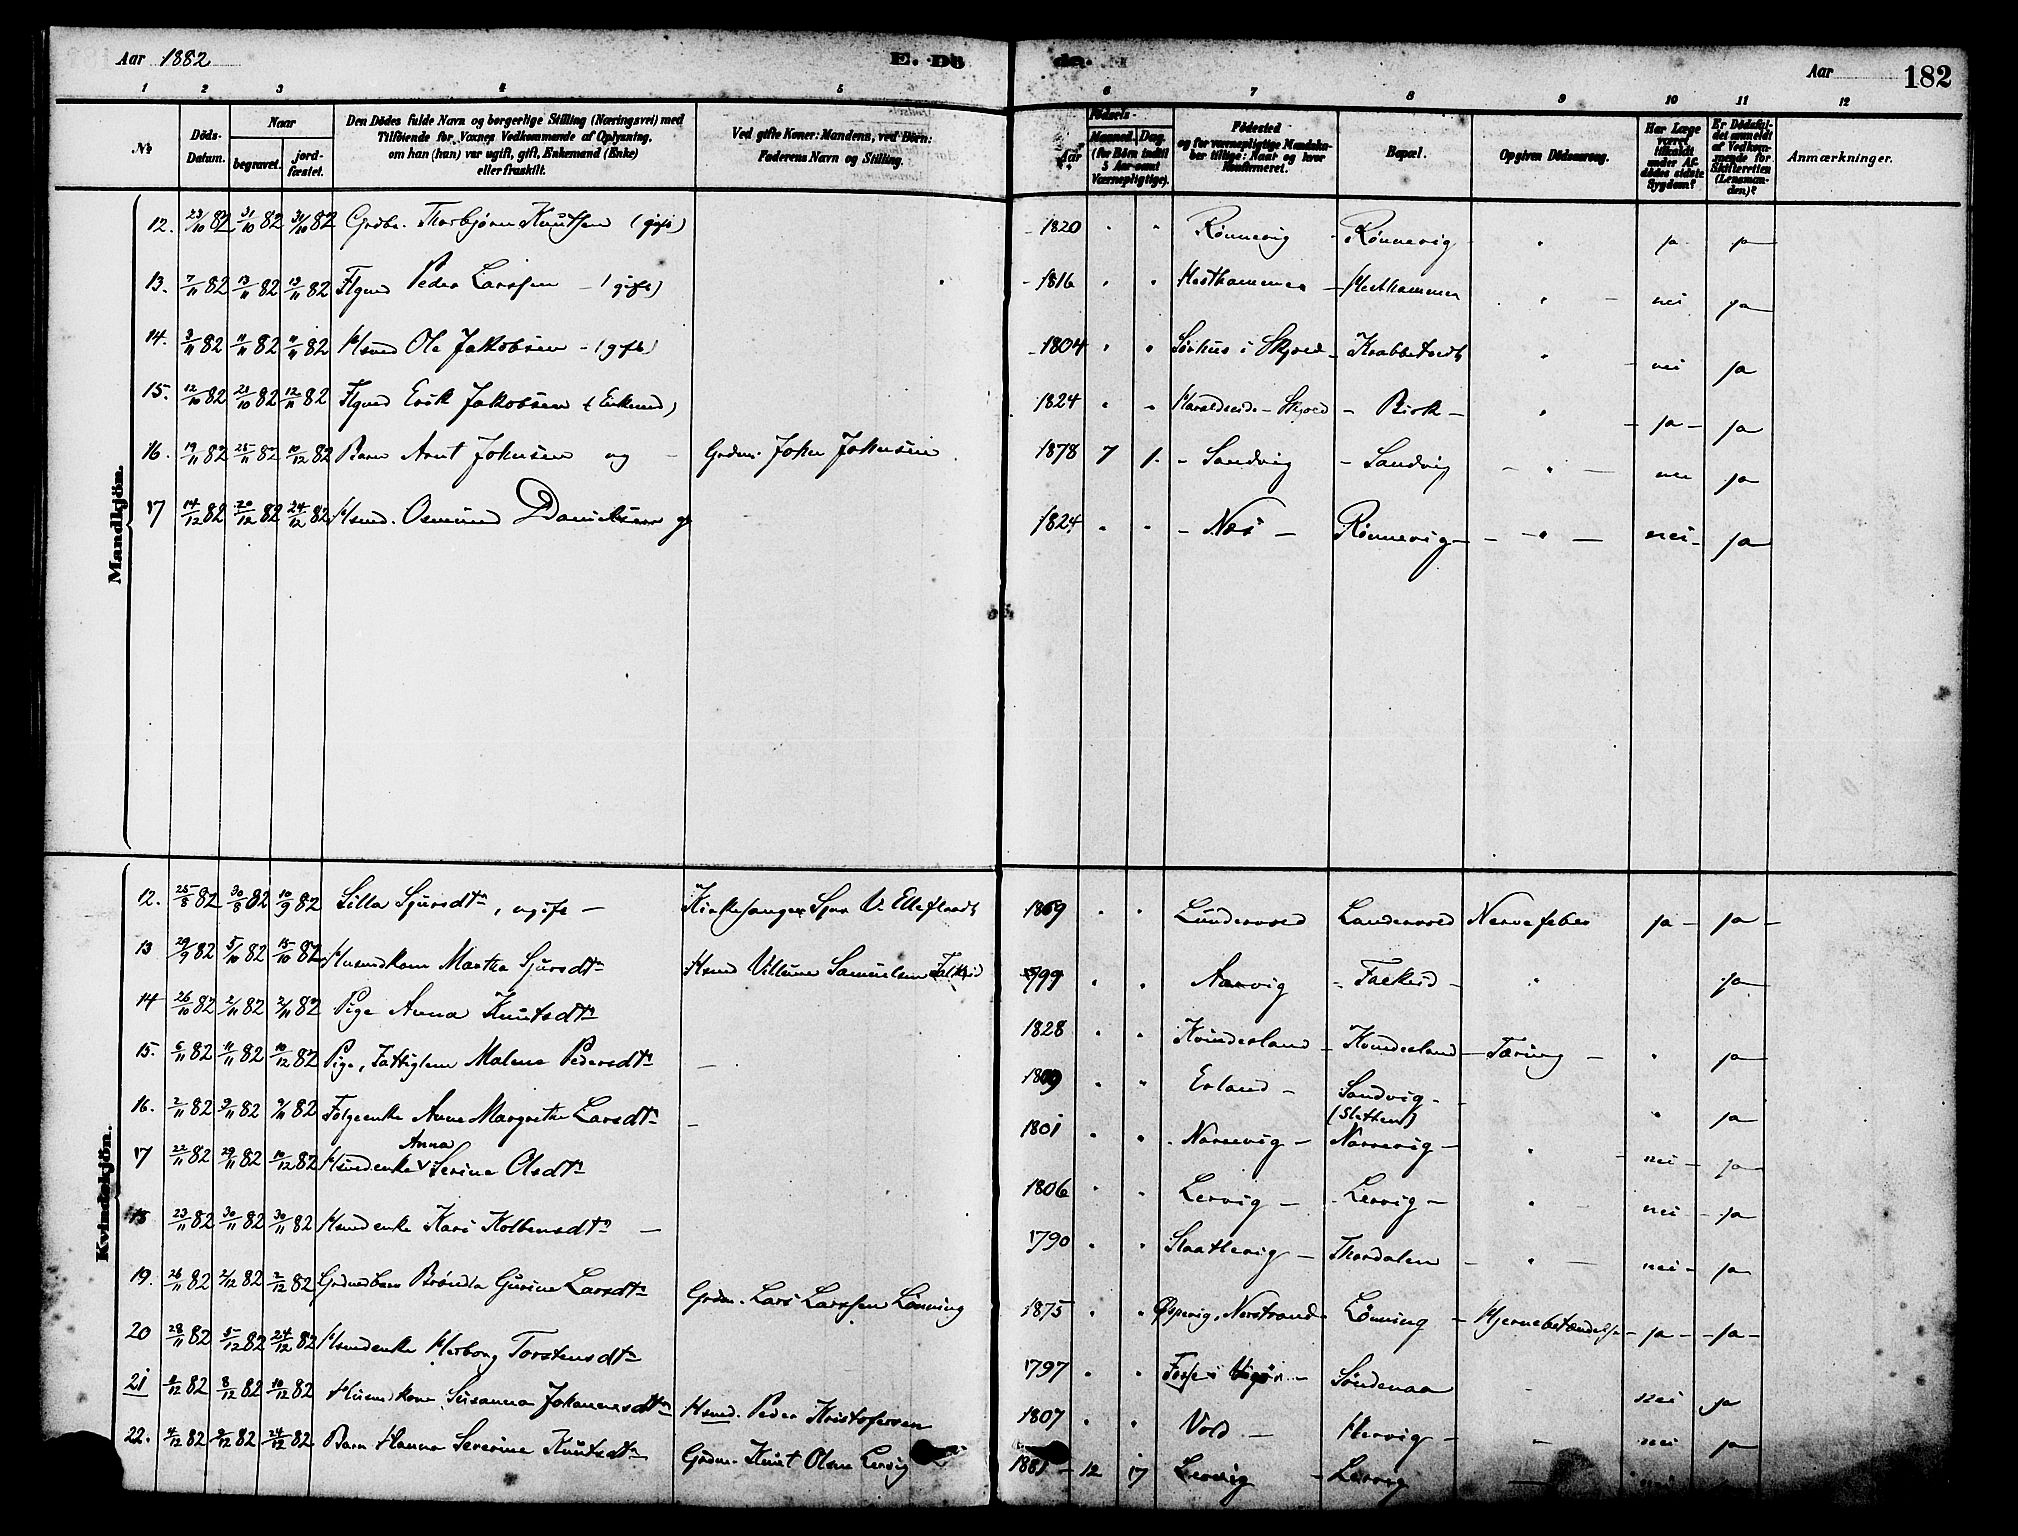 Aar 1882
E. Dö
de.
Aar
182
1 2 3 4 5 6 7 8 9 10 11 12
No
Döds-Datum.
Naar
begravet.
jordfæstet.
Den Dödes fulde Navn og borgerlige Stilling (Næringsvei) med Tilföiende for Voxnes Vedkommende af Oplysning, om han (hun) var ugift, gift, Enkemand (Enke) eller fraskilt.
Ved gifte Koner: Mandens, ved Börn: Faderens Navn og Stilling.
Födsels-
Aar
Maaned. Dag.
(for Börn indtil 5 Aar samt Værnepligtige).
Födested og for værnepligtige Mandskaber tillige: Naar og hvor Konfirmeret.
Bopæl.
Opgiven Dödsaarsag.
Har Læge været tilkaldt under Afdödes sidste Sygdom?
Er Dödsfaldet anmeldt af Vedkommende for Skifteretten (Lensmanden)?
Anmærkninger.
Mandkjön.
12. 23/10 82 31/10 82 31/10 82 Grdbr. Thorbjørn Knutsen (gift) 1820 " " Rønnevig Rønnevig " ja ja
13. 7/11 82 13/11 82 13/11 82 Flgmd Peder Larssen (gift) 1816 " " Hesthammer Hesthammer " nei ja
14. 3/11 82 11/11 82 11/11 82 Hsmd Ole Jakobsen (gift) 1804 " " Sørhus i Skjold Krabbetveit " nei ja
15. 12/10 82 21/10 82 12/11 82 Flgmd Erik Jakobsen (Enkmd) 1824 " " Haraldseid Skjold Birk " ja ja
16. 19/11 82 25/11 82 10/12 82 Barn Arnt Johnsen ug Grdm. John Johnsen 1878 7 1. Sandvig Sandvig " nei ja
17 14/12 82 20/12 82 24/12 82 Hsmd. Osmund Danielsen g 1824 " " Næs Rønnevig " nei ja
Kvindekjön.
12. 25/8 82 30/8 82 10/9 82 Silla Sjursdtr, ugift Kirkesanger Sjur V. 1869 " " Landervord Nervefeber ja ja
13 29/9 82 5/10 82 15/10 82 Husmdkone Martha Sjursdtr Hsmd Villum Samuelsen Falkeid 1799 " " Narvig Falkeid " ja
14 26/10 82 2/11 82 2/11 82 Pige Anna Knutsdtr 1828 " " Kvindesland Kvindesland Tæring " ja
15. 6/11 82 11/11 82 10/12 82 Pige, Fattiglem Malene Pedersdtr 1809 " " Erland Sandvig (Sletten) " ja
16. 2/11 82 9/11 82 9/11 82 Folgeenke Anne Margrethe Larsdtr 1801 " " Narrevig Narrevig " nei ja
17 22/11 82 29/11 82 10/12 82 Hsmdenke Anna Serine Olsdtr 1806 " " Lervig Lervig " nei ja
18 23/11 82 30/11 82 30/11 82 Hsmdenke Kari Kolbensdtr 1790 " " Slaattevig Thordalen " nei ja
19. 26/11 82 2/12 82 2/12 82 Grdmdbarn Brønla Gurine Larsdtr Grdm. Lars Larssen Lønning 1875 " " Øspevig, Nerstrand Lønning Hjernebetændelse ja ja
20 28/11 82 5/12 82 24/12 82 Hsmdenke Herborg Torstensdtr 1797 " " Søndenaa nei ja
21 2/12 82 8/12 82 10/12 82 Husmdkone Susanna Johannesdtr Hsmd. Peder Kristofersen 1807 " " Vold Hervig nei ja
22. 4/12 82 9/12 82 24/12 82 Barn Hanna Severine Knutsdtr Grdm. Knut Olsen Lervig 1881 12 17 Lervig Lervig nei